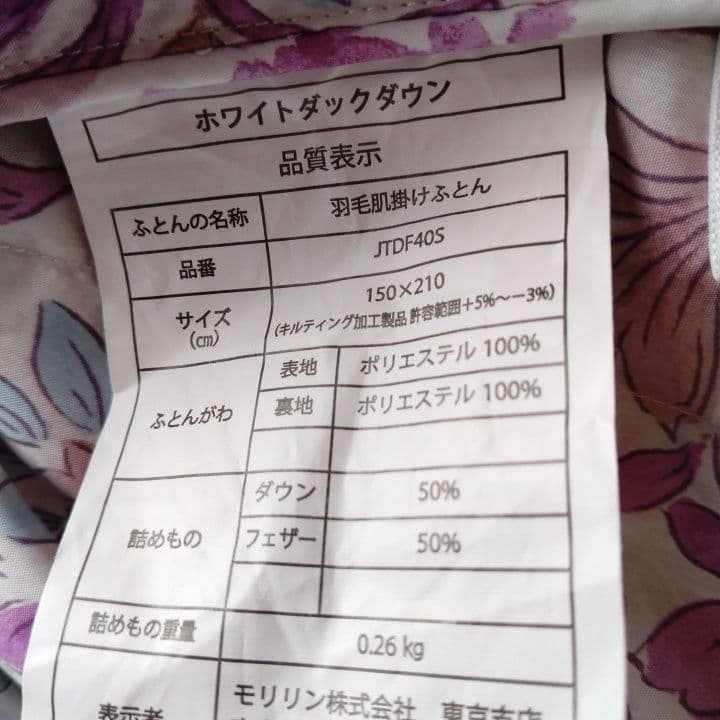 ホワイトダックダウン
品質表示
ふとんの名称 羽毛肌掛けふとん
品番 JTDF40S
サイズ(㎝) 150×210
(キルティング加工製品 許容範囲+5%～−3%)
ふとんがわ 表地 ポリエステル 100%
裏地 ポリエステル 100%
詰めもの ダウン 50%
フェザー 50%
詰めもの重量 0.26 kg
表示者 モリリン株式会社 東京支店